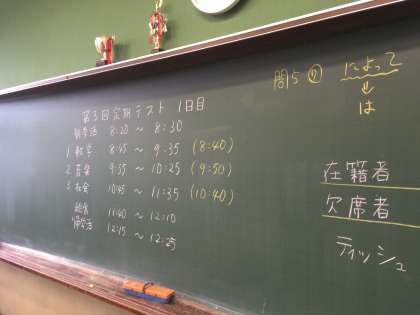 第3回定期テスト 1日目
朝学活 8:20 〜 8:30
1 数学 8:45 〜 9:35 (8:40)
2 音楽 9:35 〜 10:25 (9:50)
3 社会 10:45 〜 11:35 (10:40)
給食 11:40 〜 12:10
帰学活 12:15 〜 12:25
問5の によって
↓
は
在籍者
欠席者
ティッシュ